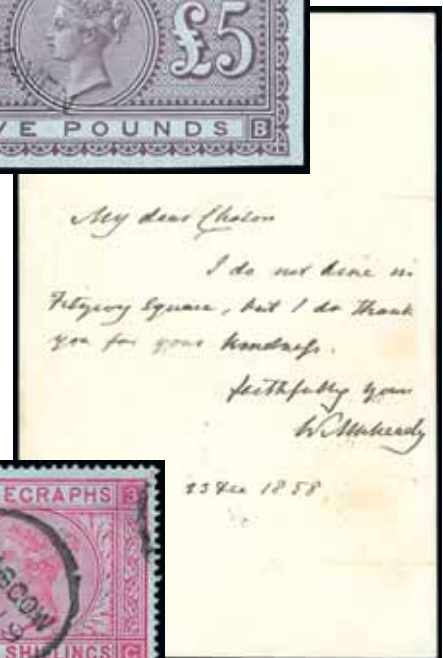 £5
VE POUNDS B
My dear Chalon
I do not dine in
Fitzroy Square, but I do thank
you for your kindness.
faithfully yours
W. Mulready
23 Dec 1858
EGRAPHS 3
SGOW
SHILLINGS C